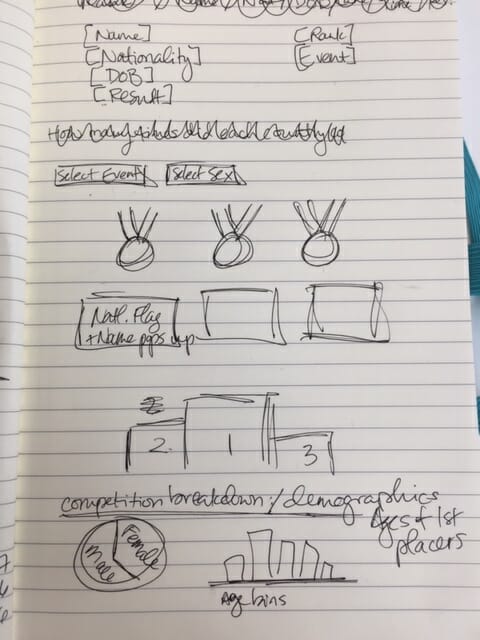 [Name] [Rank]
[Nationality] [Event]
[DOB]
[Result]
How many did each country
Select Event Select Sex
Natl. Flag
+ Name pops up
2 1 3
competition breakdown / demographics
Male Female
Ages of 1st
placers
Age bins